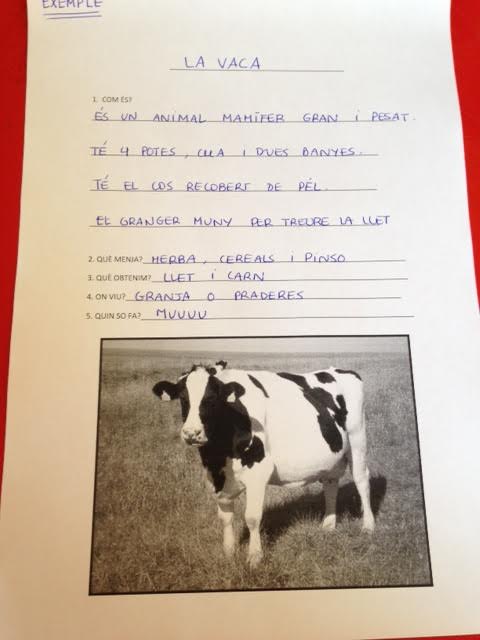 EXEMPLE
LA VACA
1. COM ÉS?
ÉS UN ANIMAL MAMÍFER GRAN I PESAT.
TÉ 4 POTES, CUA I DUES BANYES.
TÉ EL COS RECOBERT DE PÉL.
EL GRANGER MUNY PER TREURE LA LLET
2. QUÈ MENJA? HERBA, CEREALS I PINSO
3. QUÈ OBTENIM? LLET I CARN
4. ON VIU? GRANJA O PRADERES
5. QUIN SO FA? MUUUU